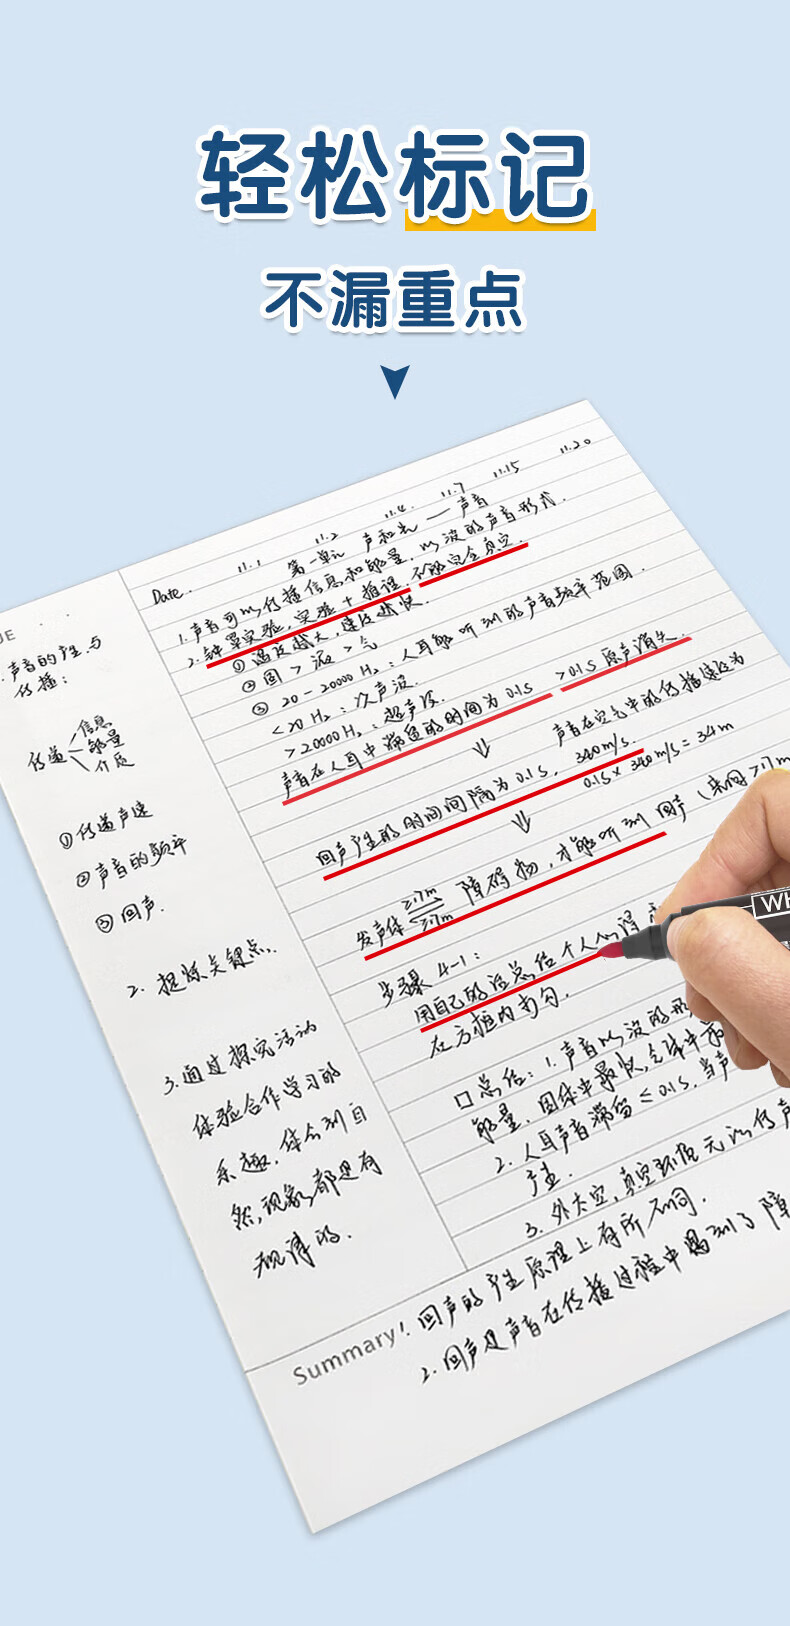 轻松标记
不漏重点
11.1 11.2 11.4 11.7 11.15 11.20
Date. 第一单元 声和光 — 声音
1. 声音可以传播信息和能量, 以波的声音形式.
2. 钟罩实验, 实验+推理, 不能完全真空.
① 温度越大, 速度越快.
② 固 > 液 > 气
③ 20-20000Hz: 人耳能听到的声音频率范围.
<20Hz: 次声波.
>20000Hz: 超声波.
声音在人耳中滞留的时间为0.1s >0.1s原声消失
⇓ 声音在空气中的传播速度为
回声产生的时间间隔为0.1s, 340m/s.
⇓ 0.1s×340m/s=34m
发声体 ≥17m ≥17m 障碍物, 才能听到回声 (来回>17m
步骤4-1:
用自己的话总结个人心得
在方框内
口总结: 1. 声音以波的形
能量, 固体中最快, 气体中最
2. 人耳声音滞留≤0.1s, 当声
产生.
3. 外太空, 真空环境无以传声
UE
声音的产生与
传播:
传递 信息
能量
介质
① 传递声速
② 声音的频率
③ 回声.
2. 提炼关键点.
3. 通过探究活动
体验合作学习的
乐趣, 体会到自
然现象都是有
规律的.
Summary! 回声的产生原理上有所不同.
2. 回声是声音在传播过程中遇到了障
WH